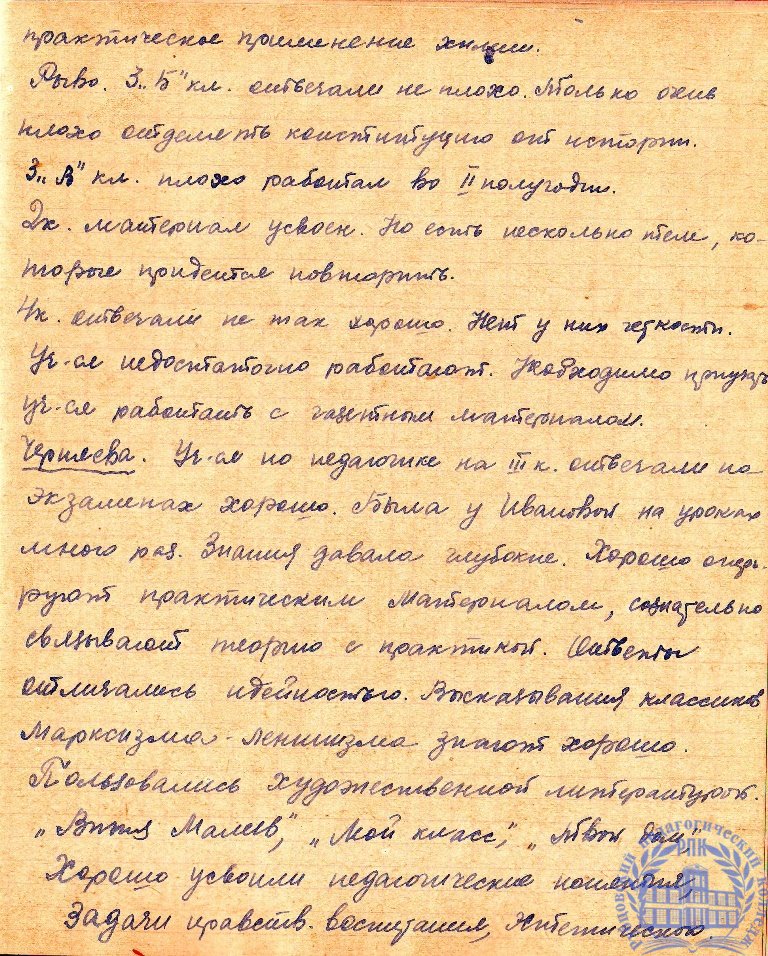 практическое применение химии.
Рыво. 3 „Б" кл. отвечали не плохо. Только очень
плохо отделять конституцию от истории.
3 „В" кл. плохо работал во II полугодии.
2к. материал усвоен. Но есть несколько тем, ко-
торые придется повторить.
4к. отвечали не так хорошо. Нет у них четкости.
Уч-ся недостаточно работают. Необходимо приучать
уч-ся работать с газетным материалом.
Черняева. Уч-ся по педагогике на III к. отвечали на
экзаменах хорошо. Была у Ивановой на уроках
много раз. Знания давала глубокие. Хорошо опери-
руют практическим материалом, сознательно
связывают теорию с практикой. Ответы
отличались идейностью. Высказывания классиков
Марксизма-Ленинизма знают хорошо.
Пользовались художественной литературой.
„Витя Малеев", „Мой класс", „Твой дом".
Хорошо усвоили педагогические понятия,
Задачи нравств. воспитания,
педагогический колледж
РПК